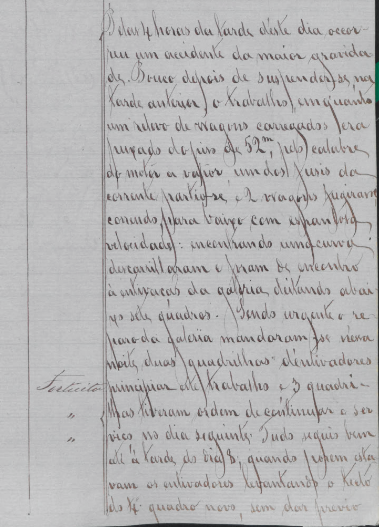 Pelas 4 horas da tarde deste dia occor-
reu um accidente da maior gravida-
de. Pouco depois de suspender-se, na
tarde anterior, o trabalho, emquanto
um relevo de wagons carregados era
puxado do piso de 52m, pelo calabre
do motor a vapor, um dos fusis da
corrente partio-se, e 2 wagons fugiram
correndo, para baixo com espantosa
velocidade: encontrando uma curva
descarrillaram e foram de encontro
á entivação da galeria, deitando abai-
xo sete quadros. Sendo urgente o re-
paro da galeria mandaram-se nessa
noite, duas quadrilhas d'entivadores
Fortuito principiar este trabalho e 3 quadri-
" lhas tiveram ordem de continuar o ser-
" viço no dia seguinte. Tudo seguio bem
até á tarde do dia 8, quando porem esta-
vam os entivadores levantando o tecto
do 4º quadro novo, sem dar previo